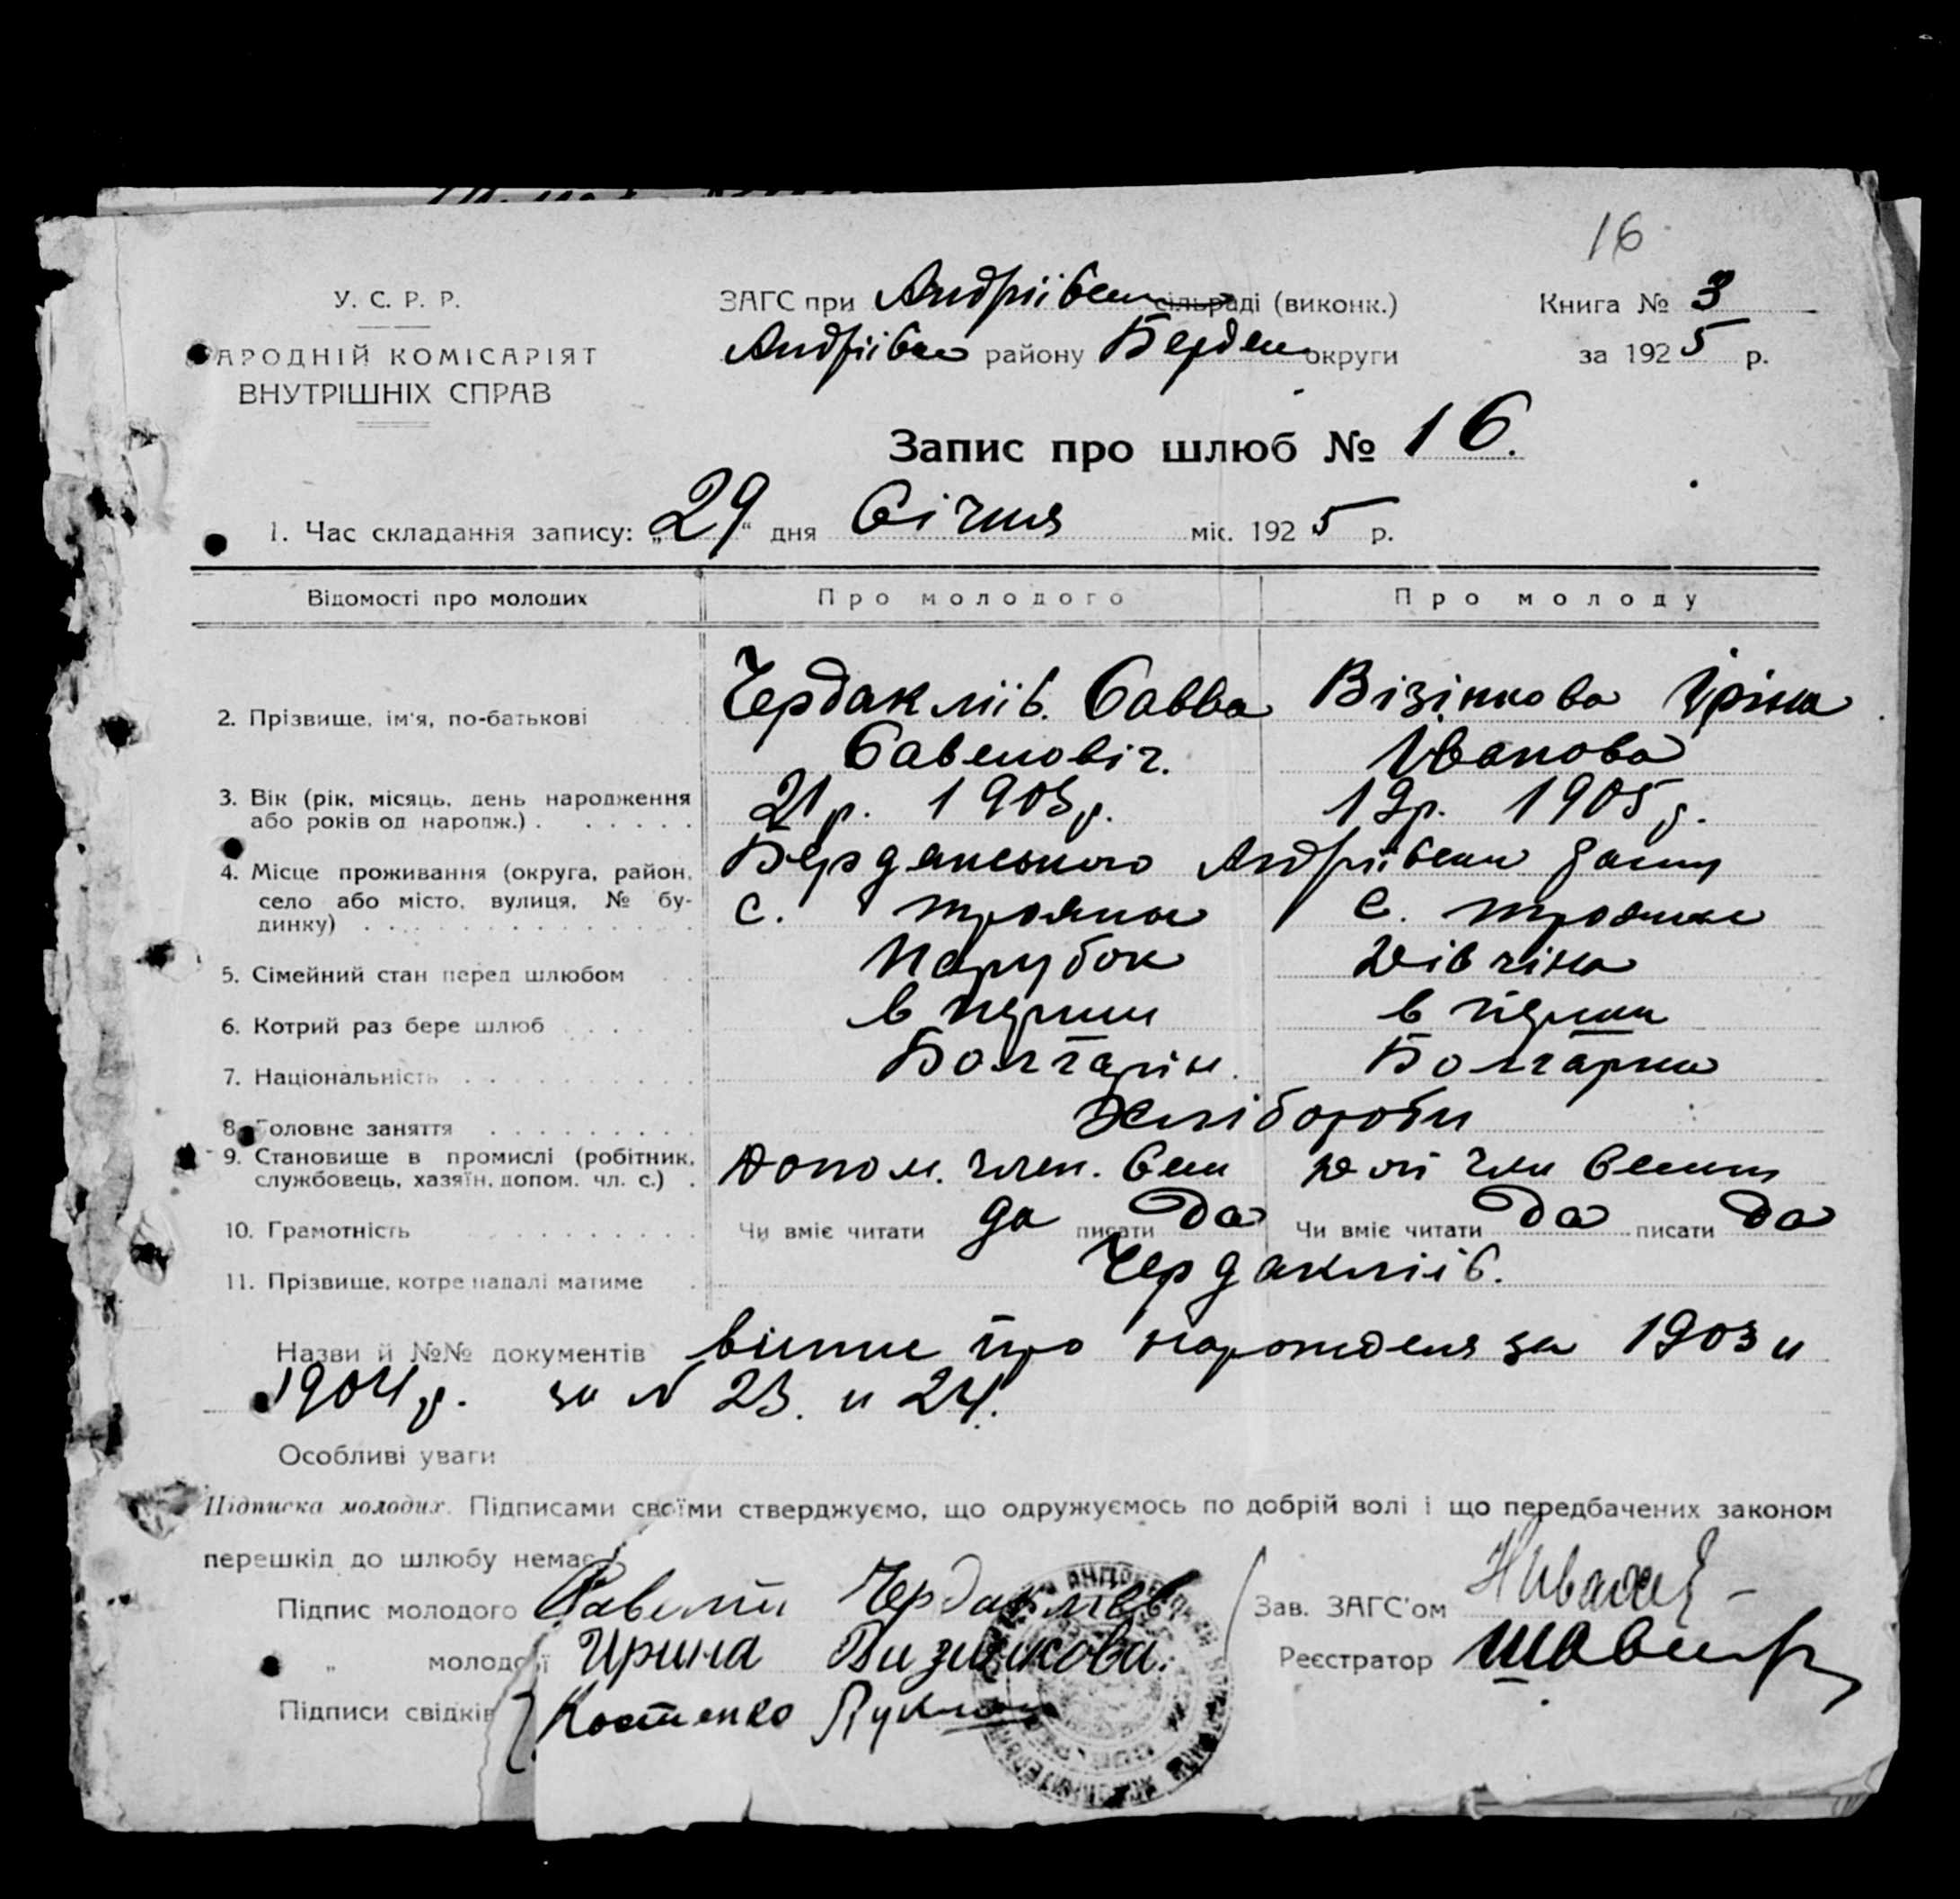 16
У. С. Р. Р.
АРОДНІЙ КОМІСАРІЯТ
ВНУТРІШНІХ СПРАВ
ЗАГС при Андріївськ сільраді (виконк.)
Андріївськ району Бердян округи
Книга № 3
за 1925 р.
Запис про шлюб № 16.
1. Час складання запису: „29“ дня Січня міс. 1925 р.
Відомості про молодих Про молодого Про молоду
2. Прізвище, ім'я, по-батькові Чердакліїв. Савва Візінкова Іріна
Савеловіч. Іванова
3. Вік (рік, місяць, день народження 21 р. 1903 р. 19 р. 1905 р.
або років од народж.) .
4. Місце проживання (округа, район, Бердянського Андріївськ
село або місто, вулиця, № бу- с. Трояни с. Трояни
динку)
5. Сімейний стан перед шлюбом Парубок Дівчіна
6. Котрий раз бере шлюб в перши в перши
7. Національність Болгарін. Болгарка
8. Головне заняття Хлібороби
9. Становище в промислі (робітник, Допом. член. член
службовець, хазяїн, допом. чл. с.) .
10. Грамотність Чи вміє читати да писати да Чи вміє читати да писати да
11. Прізвище, котре надалі матиме Чердакліїв.
Назви й №№ документів про за 1903 и
1904 р. за № 23. и 24.
Особливі уваги
Підписка молодих. Підписами своїми стверджуємо, що одружуємось по добрій волі і що передбачених законом
перешкід до шлюбу немає.
Підпис молодого Савелий Чердаклиев
Зав. ЗАГС'ом
„ молодої Ирина Визинкова.
Реєстратор
Підписи свідків Костенко